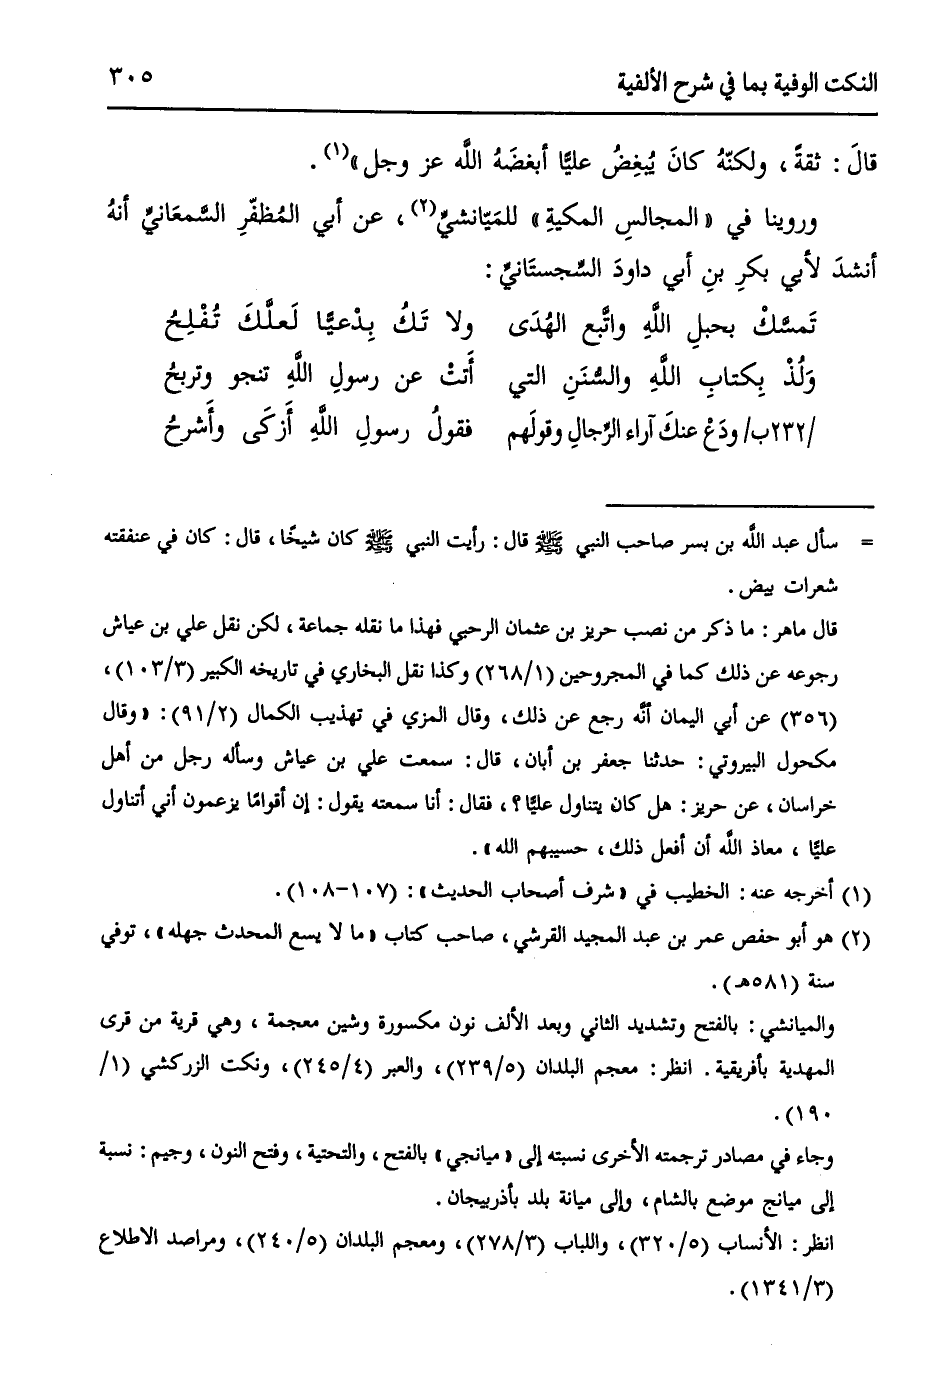 النكت الوفية بما في شرح الألفية ٣٠٥
قالَ : ثقةً ، ولكنّهُ كانَ يُبغِضُ عليًّا أبغضَهُ اللَّه عز وجل»(١) .
وروينا في «المجالسِ المكيةِ» للمَيّانشيِّ(٢) ، عن أبي المُظفّرِ السَّمعَانيِّ أنهُ
أنشدَ لأبي بكرِ بنِ أبي داودَ السِّجستَانيِّ :
تَمسَّكْ بحبلِ اللَّهِ واتَّبع الهُدَى ولا تَكُ بِدْعيًّا لَعلَّكَ تُفْلِحُ
وَلُذْ بِكتابِ اللَّهِ والسُّنَنِ التي أَتتْ عن رسولِ اللَّهِ تنجو وتربحُ
/٢٣٢ب/ ودَعْ عنكَ آراء الرِّجالِ وقولَهم فقولُ رسولِ اللَّهِ أَزكَى وأَشرحُ
= سأل عبد اللَّه بن بسر صاحب النبي ﷺ قال : رأيت النبي ﷺ كان شيخًا ، قال : كان في عنفقته
شعرات بيض .
قال ماهر : ما ذكر من نصب حريز بن عثمان الرحبي فهذا ما نقله جماعة ، لكن نقل علي بن عياش
رجوعه عن ذلك كما في المجروحين (٢٦٨/١) وكذا نقل البخاري في تاريخه الكبير (١٠٣/٣) ،
(٣٥٦) عن أبي اليمان أنَّه رجع عن ذلك ، وقال المزي في تهذيب الكمال (٩١/٢) : «وقال
مكحول البيروتي : حدثنا جعفر بن أبان ، قال : سمعت علي بن عياش وسأله رجل من أهل
خراسان ، عن حريز : هل كان يتناول عليًّا ؟ ، فقال : أنا سمعته يقول : إن أقوامًا يزعمون أني أتناول
عليًّا ، معاذ اللَّه أن أفعل ذلك ، حسيبهم الله» .
(١) أخرجه عنه : الخطيب في «شرف أصحاب الحديث» : (١٠٧-١٠٨) .
(٢) هو أبو حفص عمر بن عبد المجيد القرشي ، صاحب كتاب «ما لا يسع المحدث جهله» ، توفي
سنة (٥٨١هـ) .
والميانشي : بالفتح وتشديد الثاني وبعد الألف نون مكسورة وشين معجمة ، وهي قرية من قرى
المهدية بأفريقية . انظر : معجم البلدان (٢٣٩/٥) ، والعبر (٢٤٥/٤) ، ونكت الزركشي (١/
١٩٠) .
وجاء في مصادر ترجمته الأخرى نسبته إلى «ميانجي» بالفتح ، والتحتية ، وفتح النون ، وجيم : نسبة
إلى ميانج موضع بالشام ، وإلى ميانة بلد بأذربيجان .
انظر : الأنساب (٣٢٠/٥) ، واللباب (٢٧٨/٣) ، ومعجم البلدان (٢٤٠/٥) ، ومراصد الاطلاع
(١٣٤١/٣) .